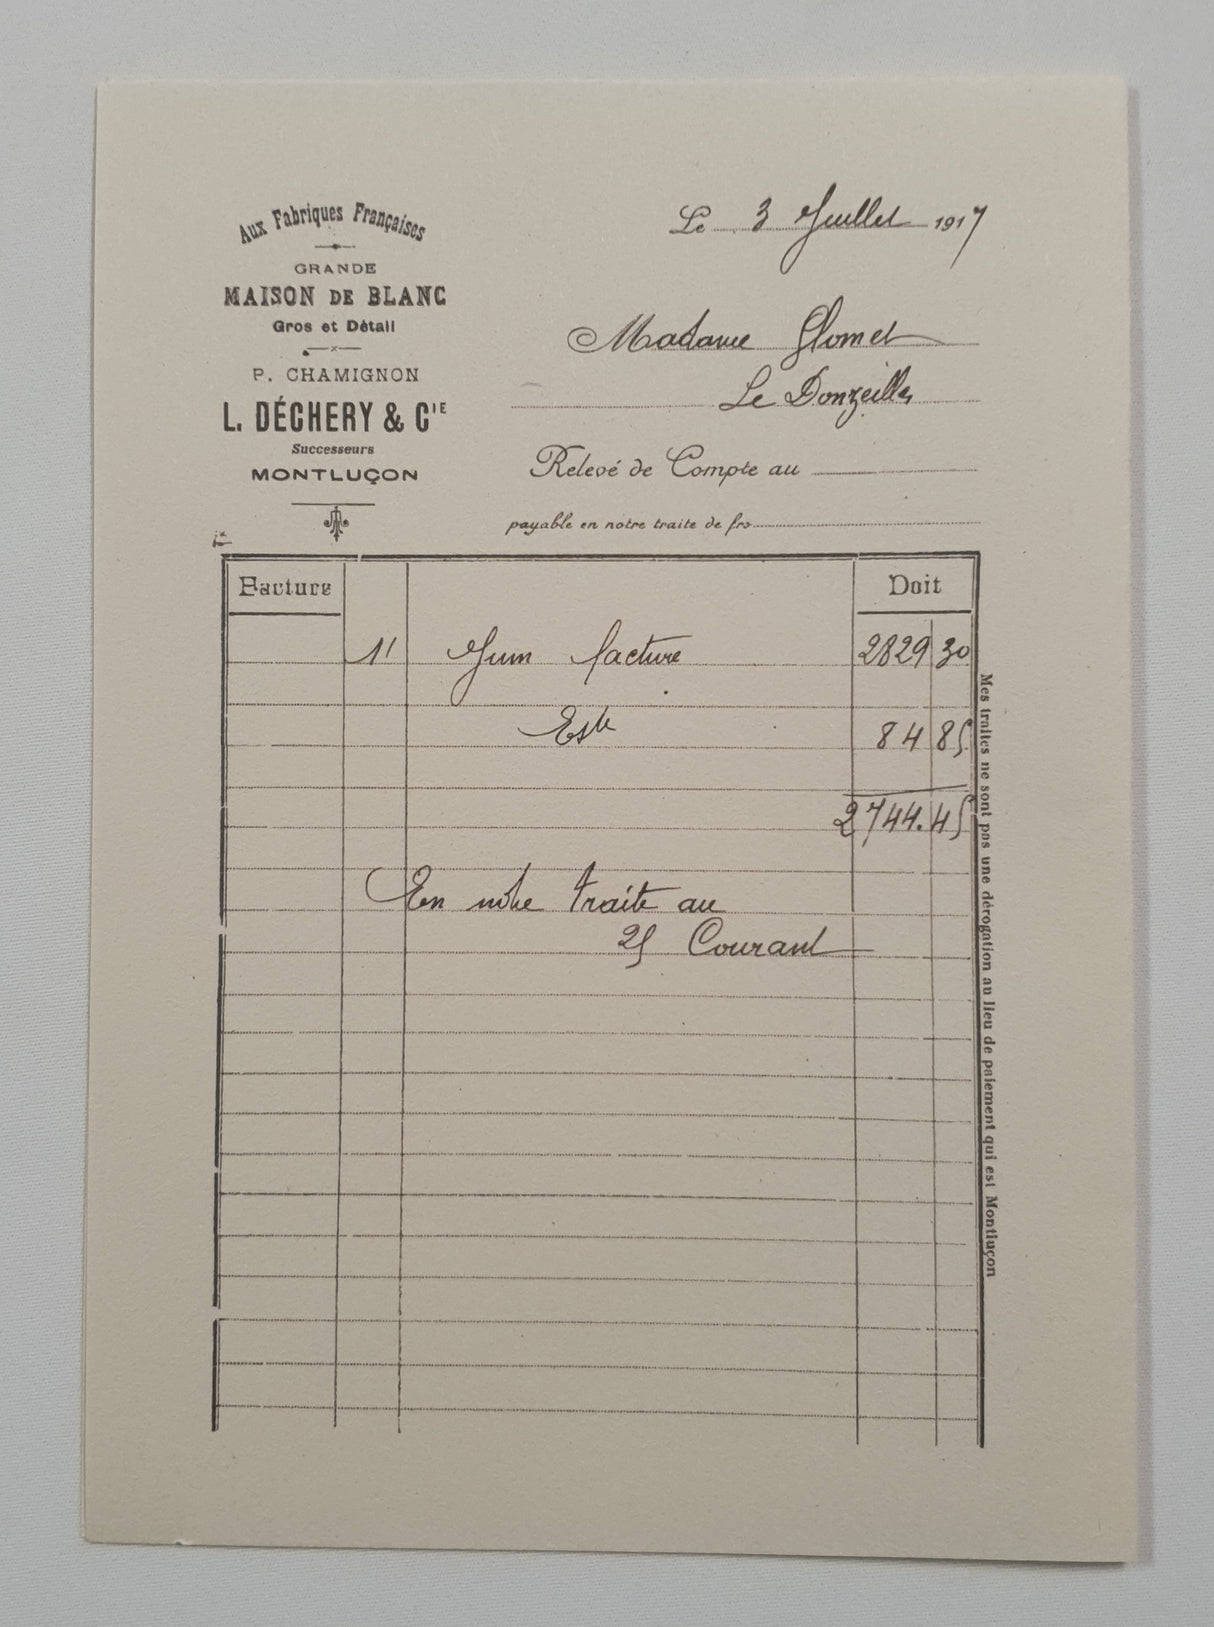 Aux Fabriques Françaises
GRANDE
MAISON DE BLANC
Gros et Détail
P. CHAMIGNON
L. DÉCHERY & CIE
Successeurs
MONTLUÇON
Le 3 Juillet 1917
Madame Glomet
Le Donzeilles
Relevé de Compte au
payable en notre traite de frs
Facture Doit
1r Juin facture 2829 30
Este 84 85
2744.45
En notre traite au
25 Courant
Mes traites ne sont pas une dérogation au lieu de paiement qui est Montluçon